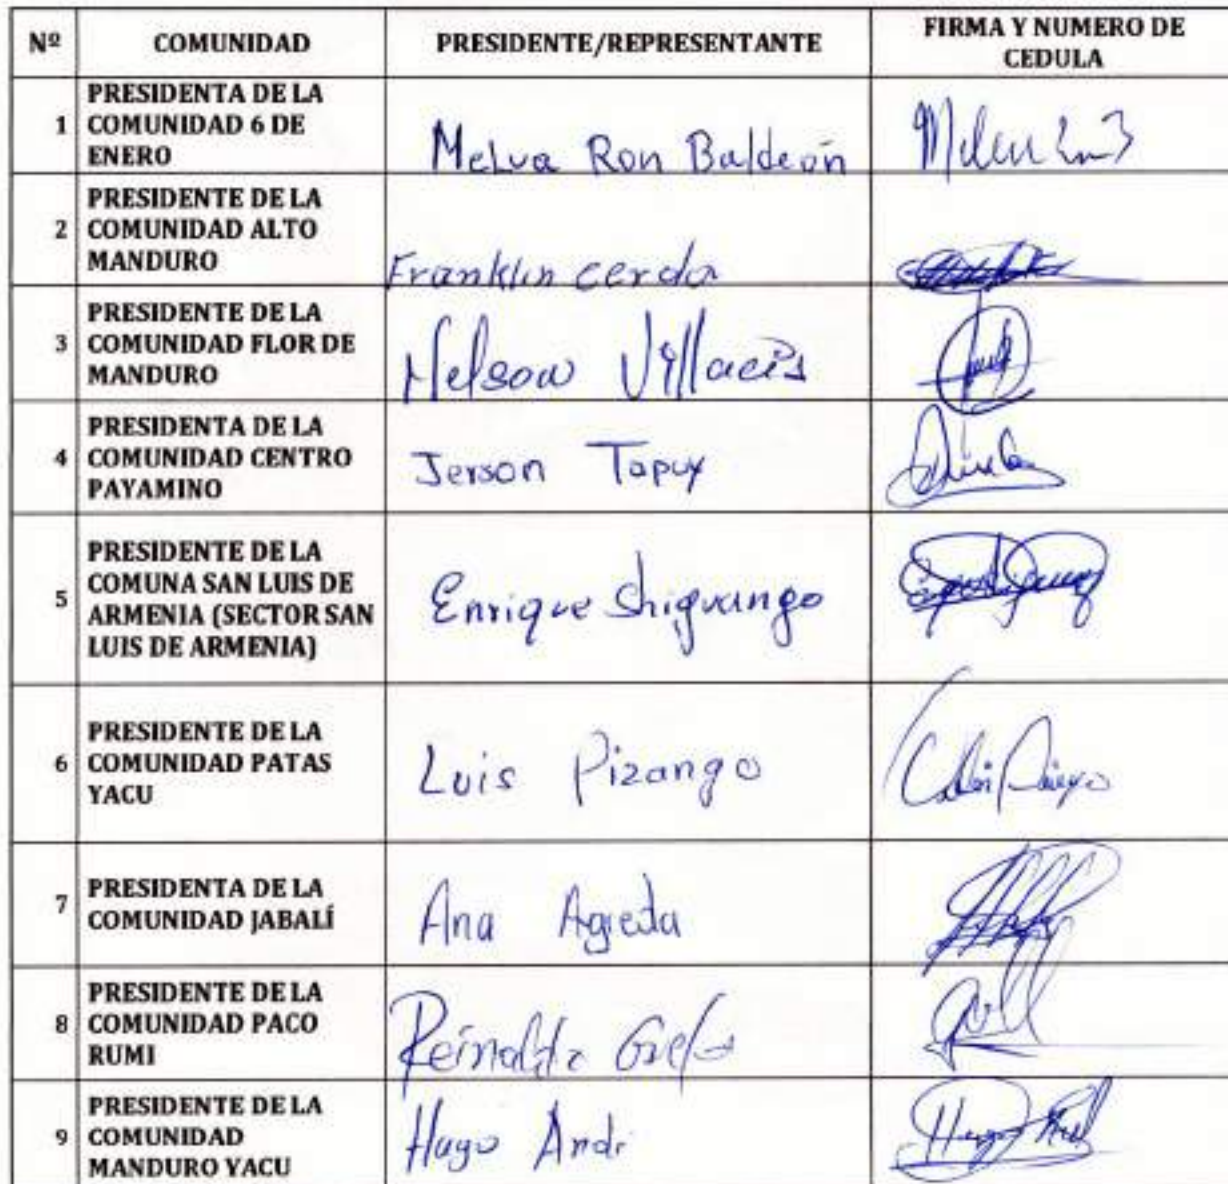 Nº COMUNIDAD PRESIDENTE/REPRESENTANTE FIRMA Y NUMERO DE
CEDULA
PRESIDENTA DE LA
1 COMUNIDAD 6 DE
ENERO
Melva Ron Baldeón
PRESIDENTE DE LA
2 COMUNIDAD ALTO
MANDURO
Franklin cerda
PRESIDENTE DE LA
3 COMUNIDAD FLOR DE
MANDURO
Nelson Villacís
PRESIDENTA DE LA
4 COMUNIDAD CENTRO
PAYAMINO
Jerson Tapuy
PRESIDENTE DE LA
5 COMUNA SAN LUIS DE
ARMENIA (SECTOR SAN
LUIS DE ARMENIA)
Enrique Shiguango
PRESIDENTE DE LA
6 COMUNIDAD PATAS
YACU
Luis Pizango
PRESIDENTA DE LA
7 COMUNIDAD JABALÍ
Ana Agreda
PRESIDENTE DE LA
8 COMUNIDAD PACO
RUMI
Grefa
PRESIDENTE DE LA
9 COMUNIDAD
MANDURO YACU
Hugo Andi